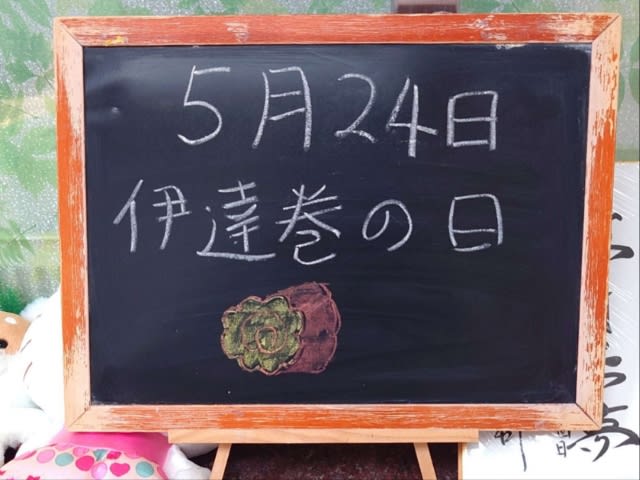 5月24日
伊達巻の日